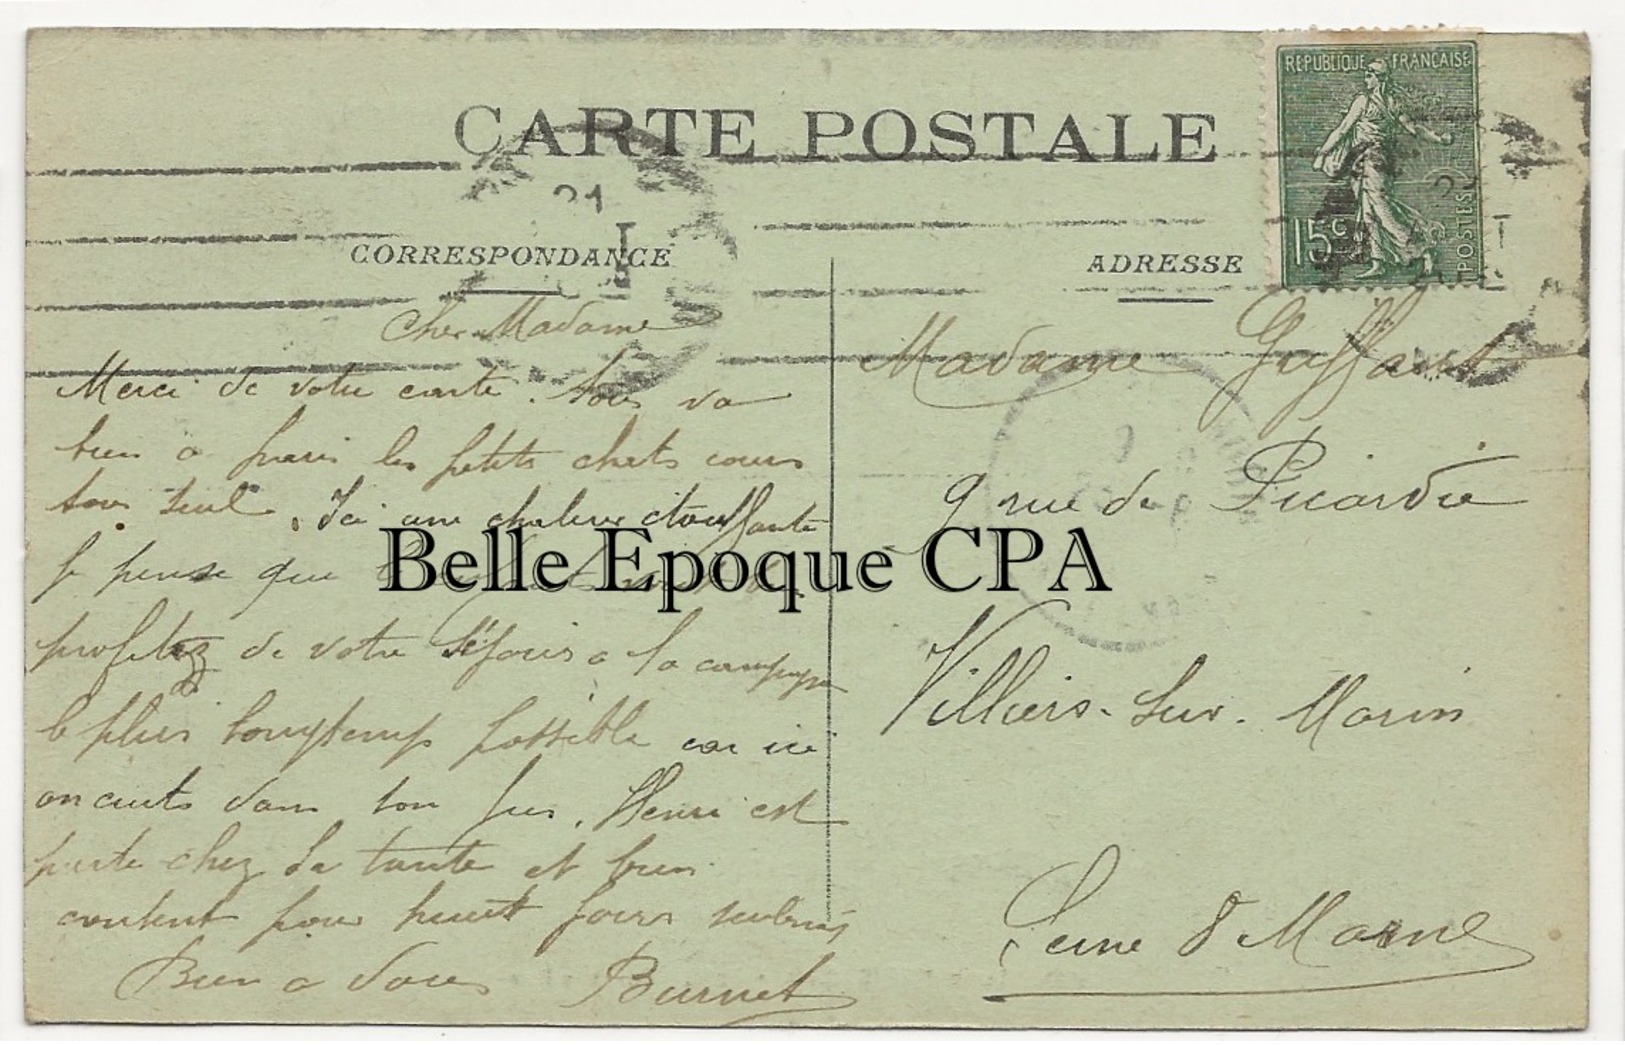 CARTE POSTALE
REPUBLIQUE FRANCAISE
15c
POSTES
21
CORRESPONDANCE
ADRESSE
Cher Madame
Merci de votre carte. tous va
bien a paris les petits chats cours
tous seul. Ici une chaleur étouffante
je pense que
profitez de votre séjour a la campagne
le plus longtemps possible car ici
on cuits dans son jus. Henri est
parti chez sa tante et bien
content pour huit jours
Bien a vous Burnet
Madame
9 rue de Picardie
Villiers-Sur-Morin
Seine & Marne
Belle Epoque CPA